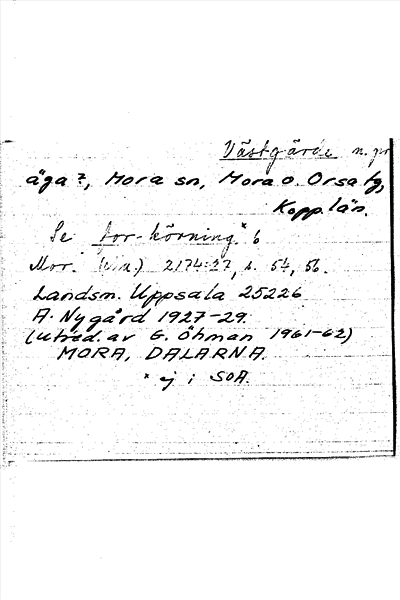 Västgärde n. pr
äga ?, Mora sn, Mora o. Orsa tg,
Kopp. län.
Se for-körning * b
Mor. 2174:27, s. 54, 56.
Landsm. Uppsala 25226
A. Nygård 1927-29.
(utred. av G. Öhman 1961-62)
MORA, DALARNA.
* ej i SOA.